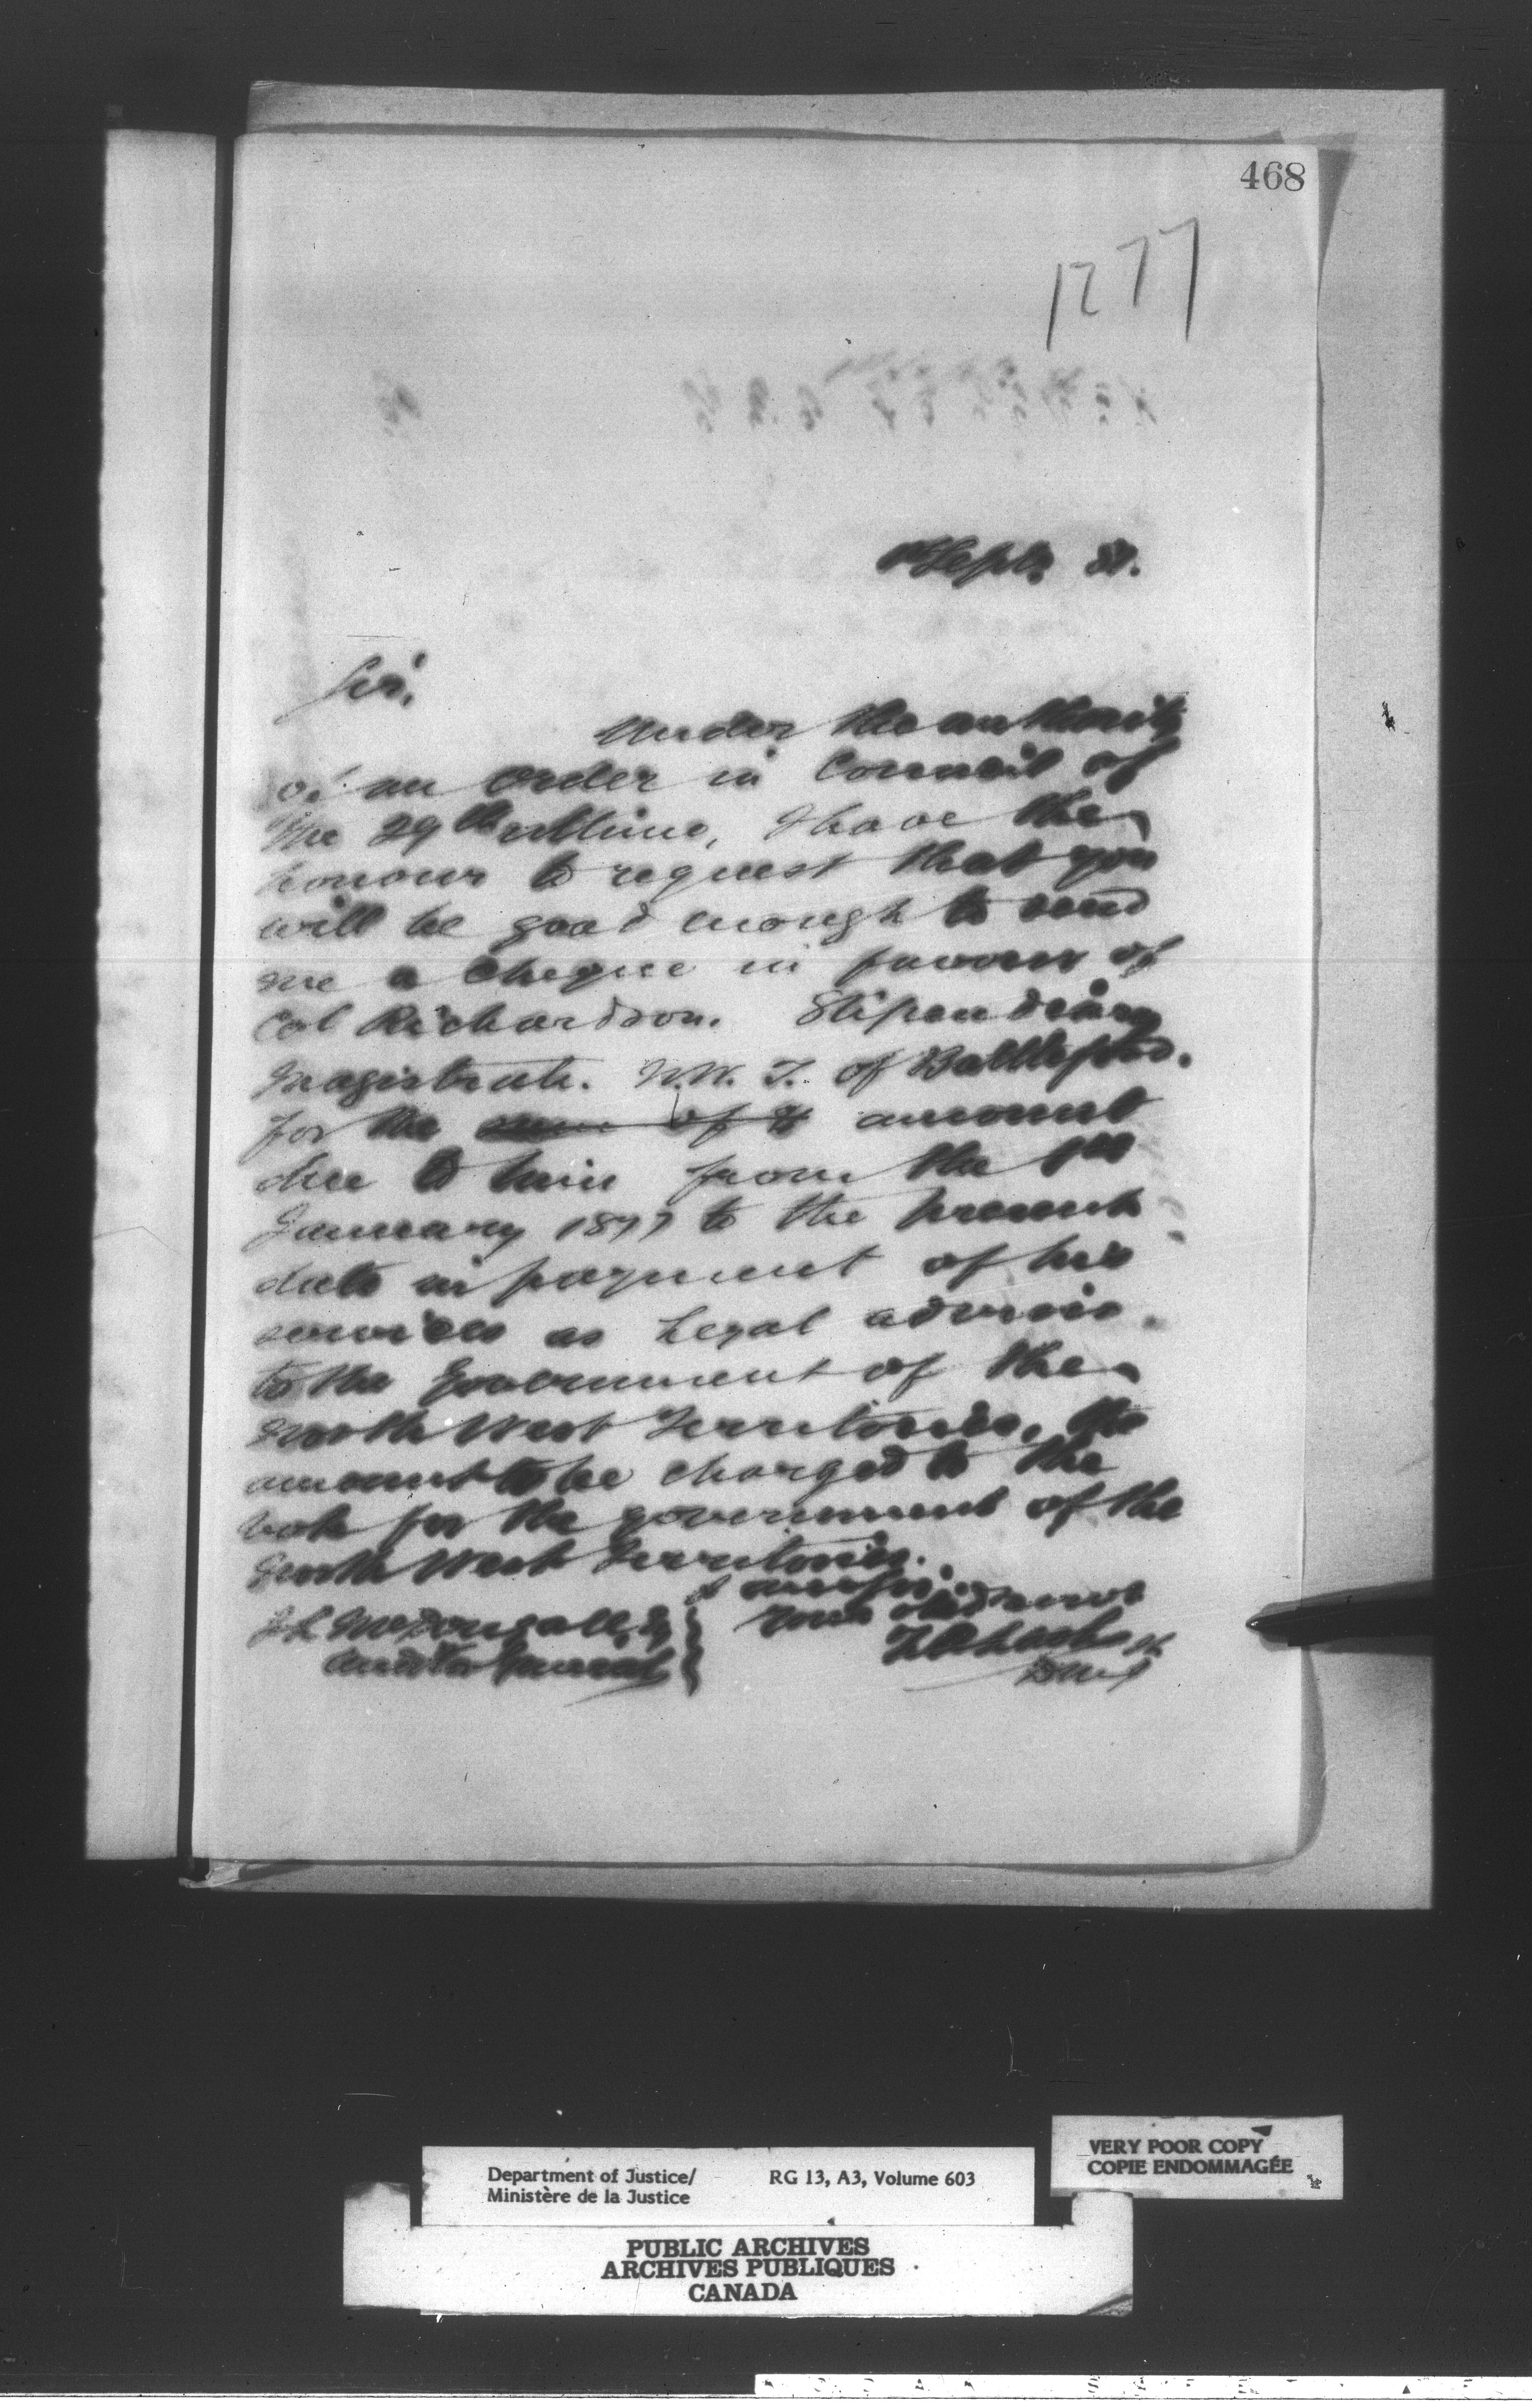 468
1277
1st Septr. 81.
Sir,
Under the authority
of an Order in Council of
the 29th ultimo, I have the
honour to request that you
will be good enough to send
me a cheque in favour of
Col Richardson. Stipendiary
Magistrate. N.W.T. of Battleford.
for the sum of $ amount
due to him from the 1st
January 1877 to the present
date in payment of his
services as Legal advisor
to the Government of the
North West Territories, the
amount to be charged to the
vote for the government of the
North West Territories.
I am Sir
J L McDougall Esq
Your obed servt
Auditor General
Z A Lash
D M J
Department of Justice/ RG 13, A3, Volume 603
Ministère de la Justice
VERY POOR COPY
COPIE ENDOMMAGÉE
PUBLIC ARCHIVES
ARCHIVES PUBLIQUES
CANADA